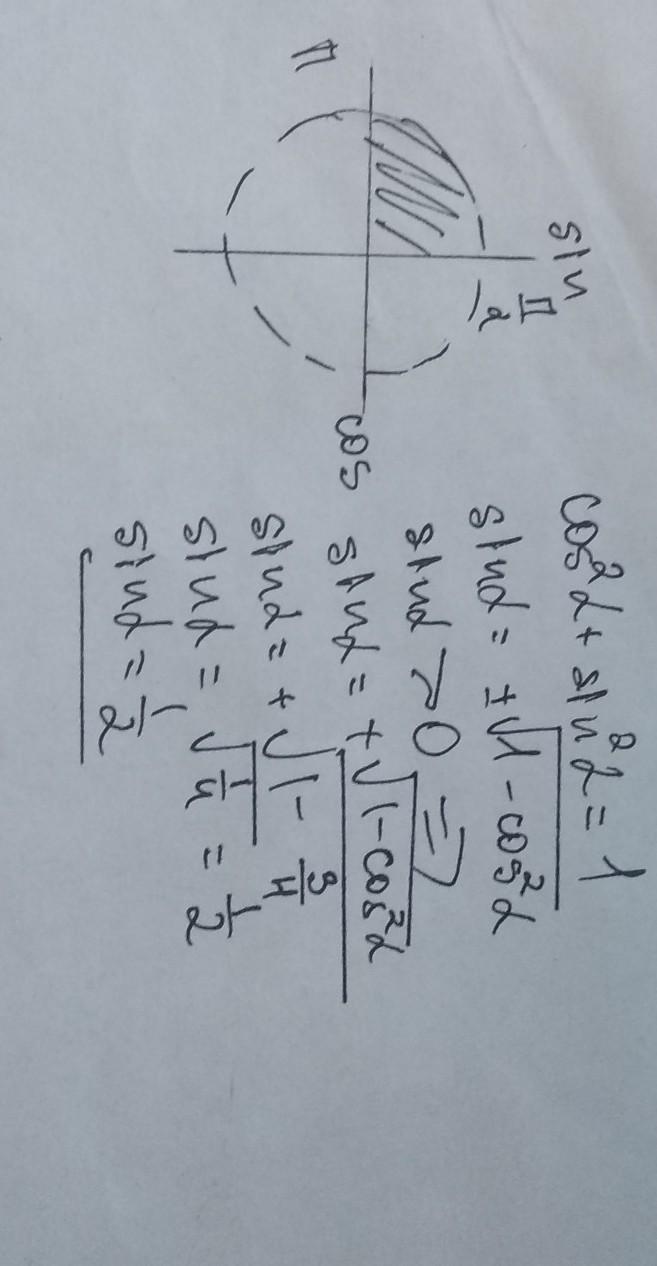 sin
π/2
π
cos
cos²α + sin²α = 1
sinα = ±√(1 - cos²α)
sinα > 0 ⇒
sinα = +√(1 - cos²α)
sinα = +√(1 - 3/4)
sinα = √(1/4) = 1/2
sinα = 1/2